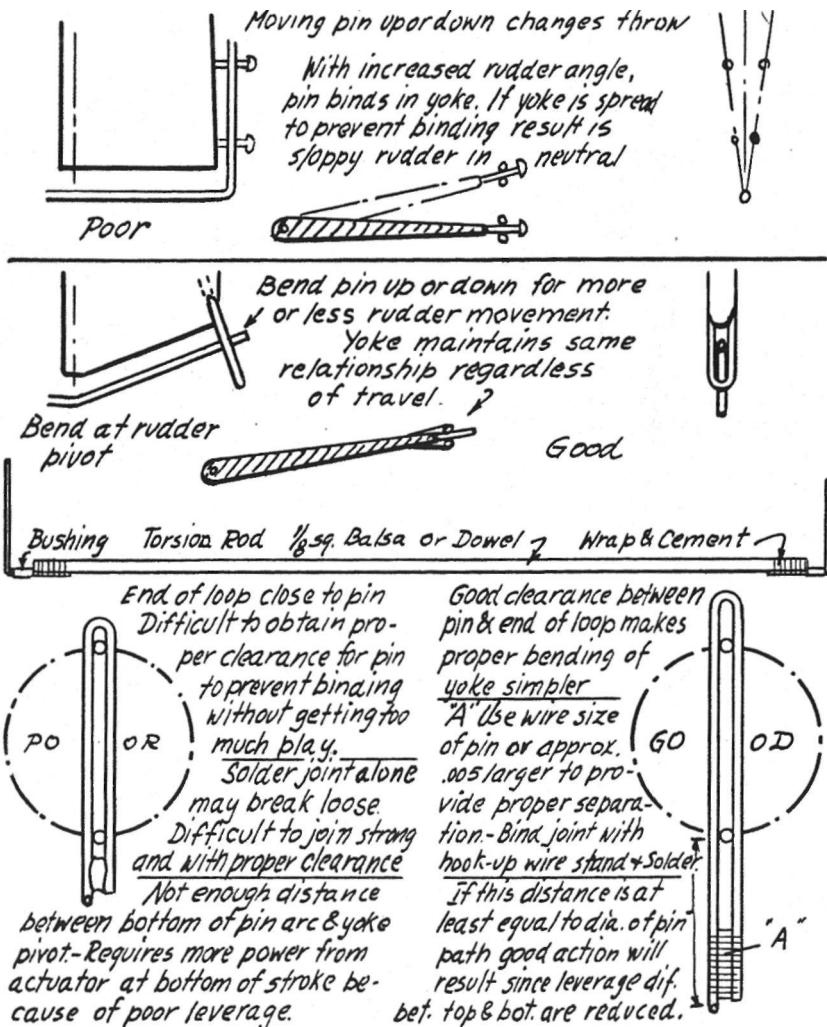 Moving pin up or down changes throw
With increased rudder angle,
pin binds in yoke. If yoke is spread
to prevent binding result is
sloppy rudder in neutral
Poor
Bend pin up or down for more
or less rudder movement.
Yoke maintains same
relationship regardless
of travel.
Bend at rudder
pivot
Good
Bushing Torsion Rod 1/8 sq. Balsa or Dowel Wrap & Cement
End of loop close to pin
Difficult to obtain pro-
per clearance for pin
to prevent binding
without getting too
much play.
Solder joint alone
may break loose.
Difficult to join strong
and with proper clearance
Not enough distance
between bottom of pin arc & yoke
pivot.-Requires more power from
actuator at bottom of stroke be-
cause of poor leverage.
PO OR
Good clearance between
pin & end of loop makes
proper bending of
yoke simpler
"A" Use wire size
of pin or approx.
.005 larger to pro-
vide proper separa-
tion.-Bind joint with
hook-up wire stand & Solder.
If this distance is at
least equal to dia. of pin
path good action will
result since leverage dif.
bet. top & bot. are reduced.
GO OD
"A"